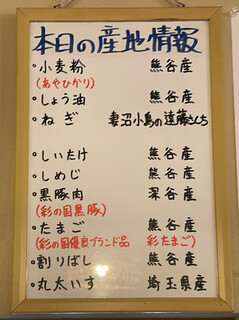 本日の産地情報
・小麦粉 熊谷産
(あやひかり)
・しょう油 熊谷産
・ねぎ 妻沼小島の遠藤さんち
・しいたけ 熊谷産
・しめじ 熊谷産
・黒豚肉 深谷産
(彩の国黒豚)
・たまご 熊谷産
(彩の国優良ブランド品 彩たまご)
・割りばし 熊谷産
・丸太いす 埼玉県産